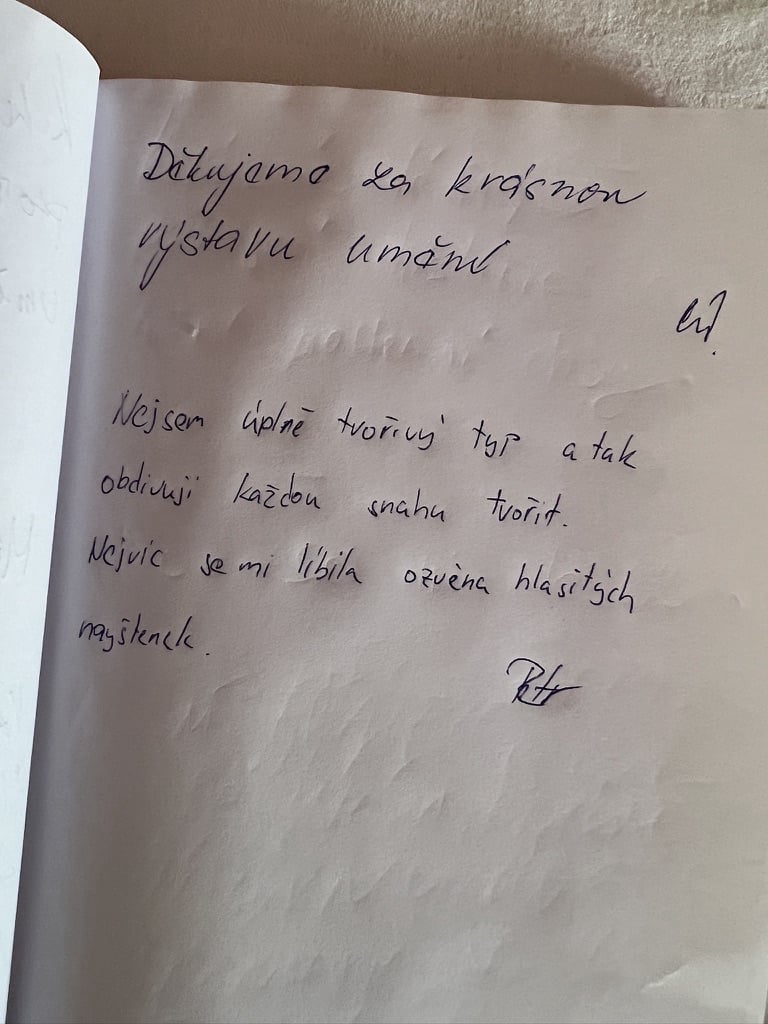 Děkujeme za krásnou
výstavu umění
Nejsem úplně tvořivý typ a tak
obdivuji každou snahu tvořit.
Nejvíc se mi líbila ozvěna hlasitých
myštenek.
Petr